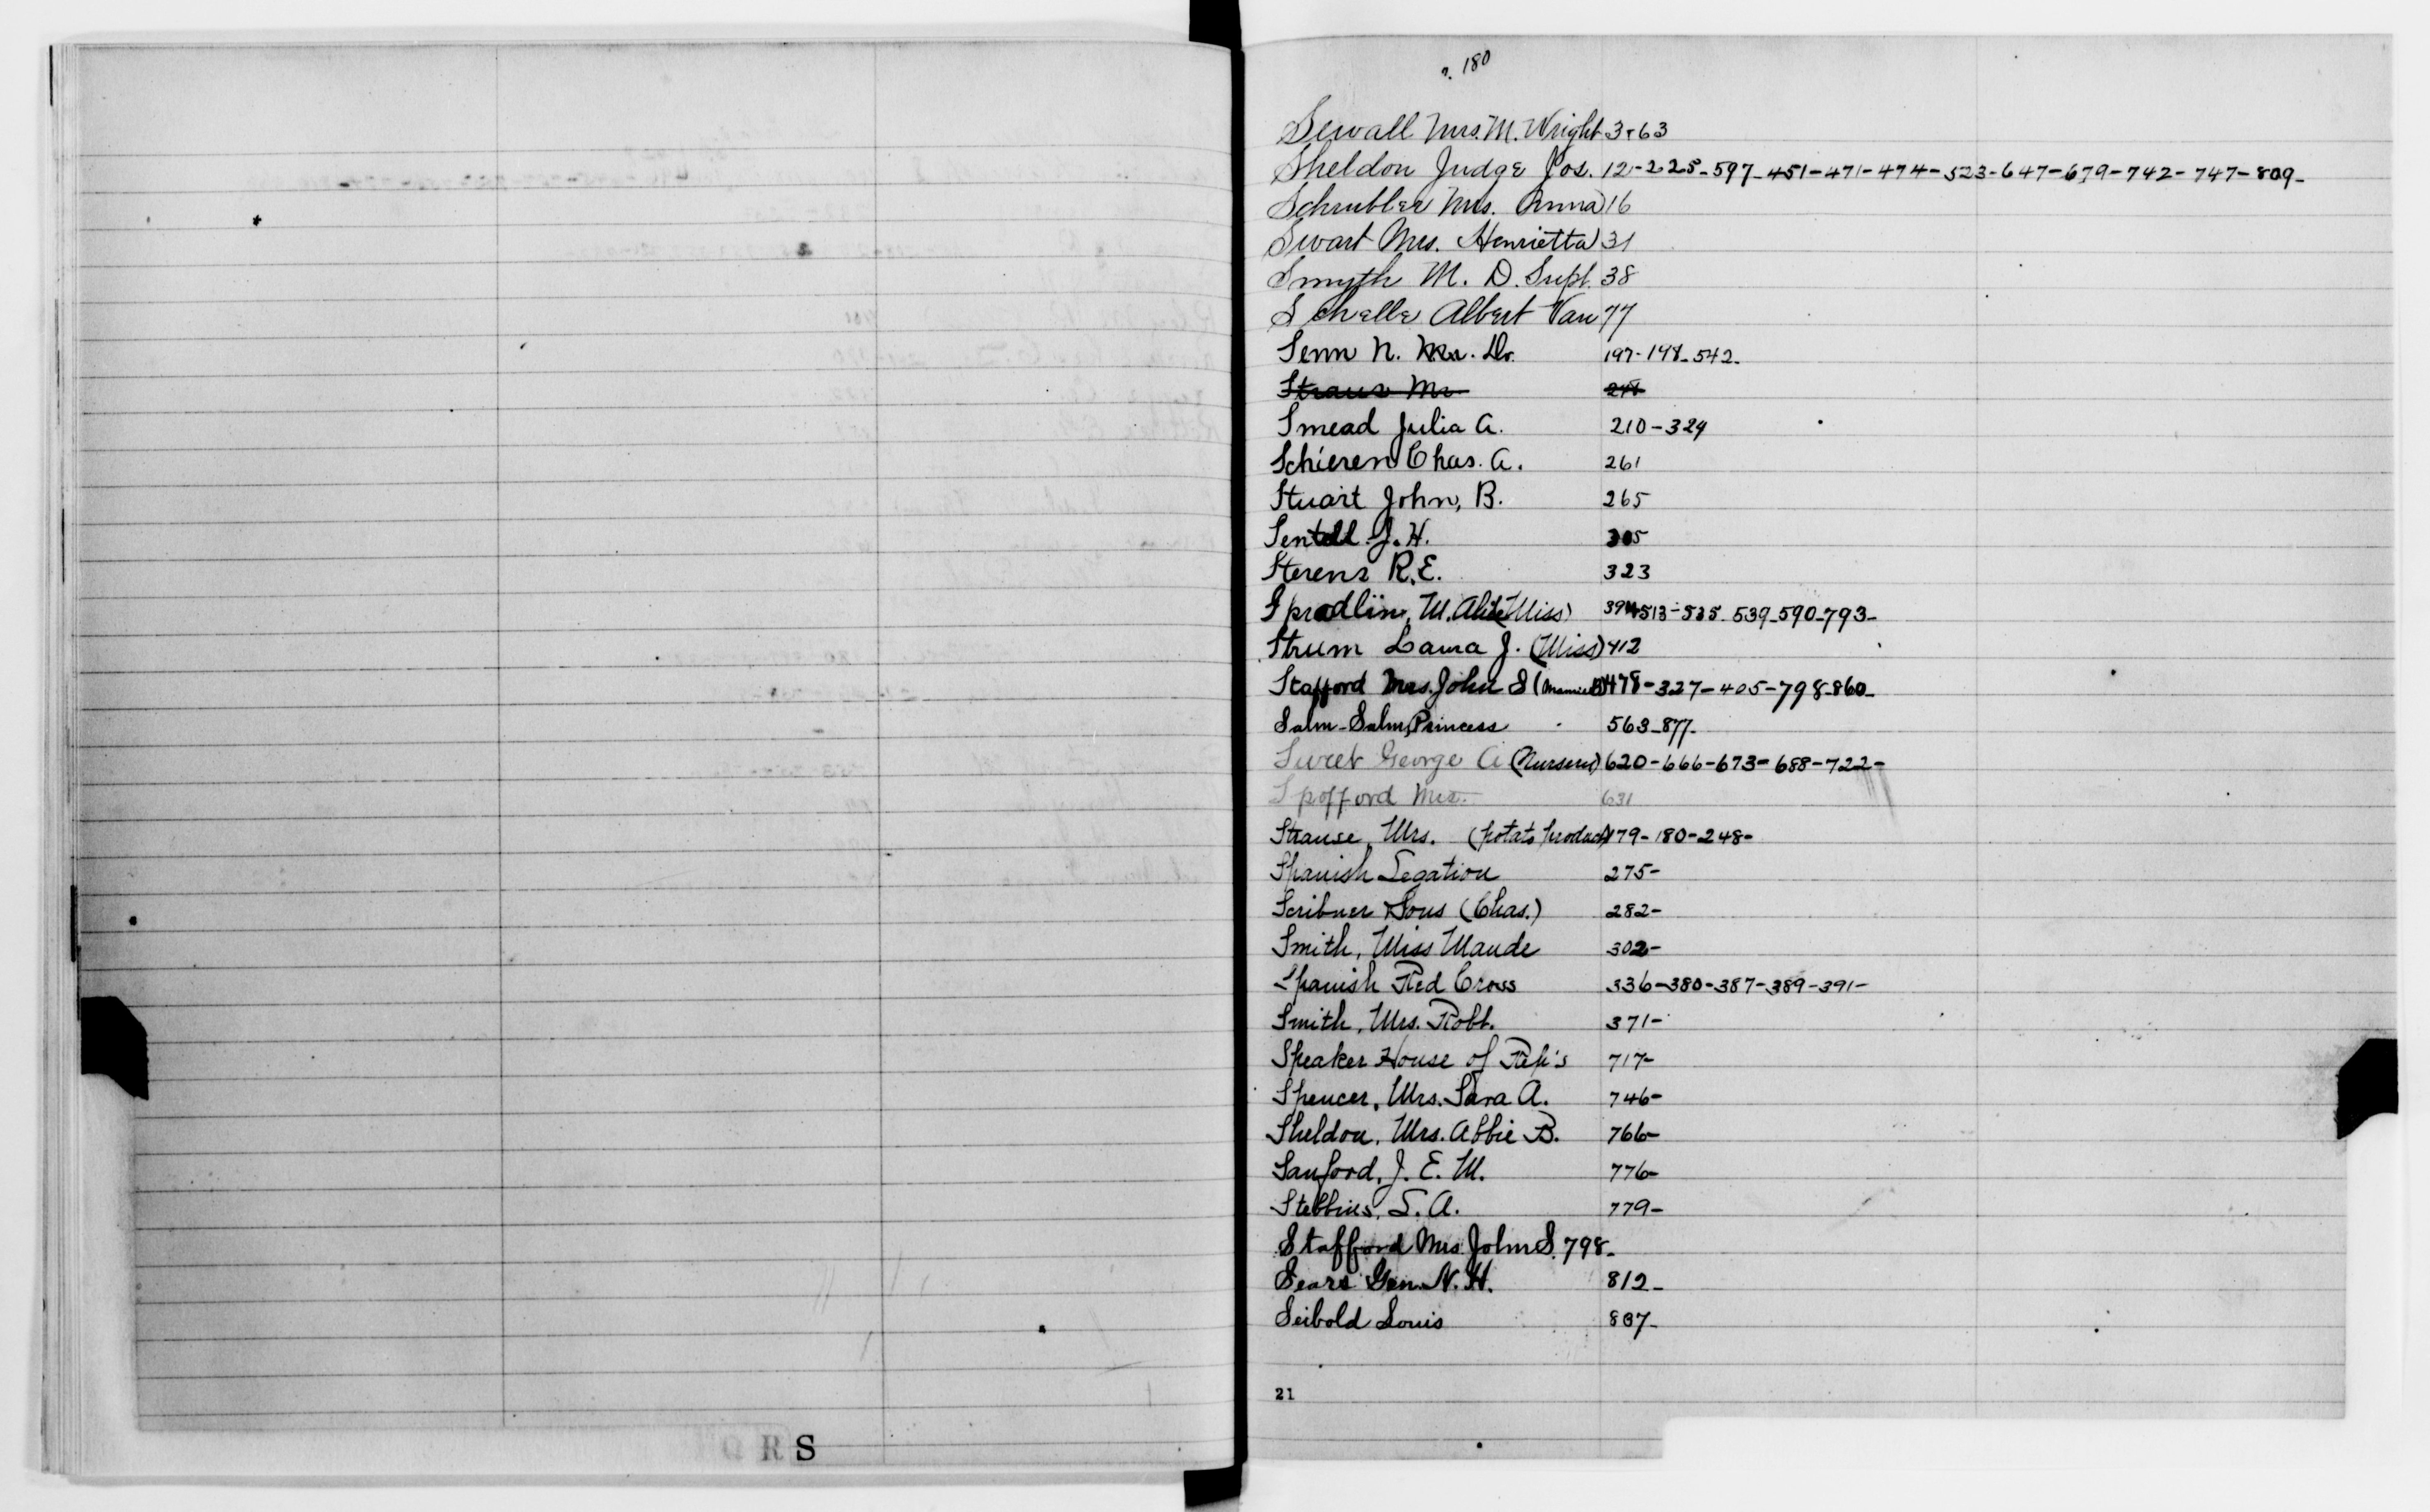 180
Sewall Mrs. M. Wright 3+63
Sheldon Judge Jos. 12-225-597-451-471-474-523-647-679-742-747-809-
Schrubler Mrs. Anna 16
Swart Mrs. Henrietta 31
Smyth M. D. Supt. 38
Schelle Albert Van 77
Senn N. Dr. 197-198-542-
Straus Mr
Smead Julia A. 210-329
Schieren Chas. A. 261
Stuart John, B. 265
Sentell J. H. 305
Sterens R. E. 323
Spradlin, M. Alice (Miss) 513-535-539-590-793-
Strum Laura J. (Miss) 412
Stafford Mrs. John S 478-327-405-798-860-
Salm-Salm, Princess 563-877-
Sweet George A (Nursery) 620-666-673-688-722-
Spofford Mrs. 631
Strause, Mrs. (potato product) 179-180-248-
Spanish Legation 275-
Scribner Sons (Chas.) 282-
Smith, Miss Maude 302-
Spanish Red Cross 336-380-387-389-391-
Smith, Mrs. Robt. 371-
Speaker House of Rep's 717-
Spencer, Mrs. Sara A. 746-
Sheldon, Mrs. Abbie B. 766-
Sanford, J. E. M. 776-
Stebbins, L. A. 779-
Stafford Mrs John S. 798-
Sears Gen. N. H. 812-
Seibold Louis 807-
21
Q R S